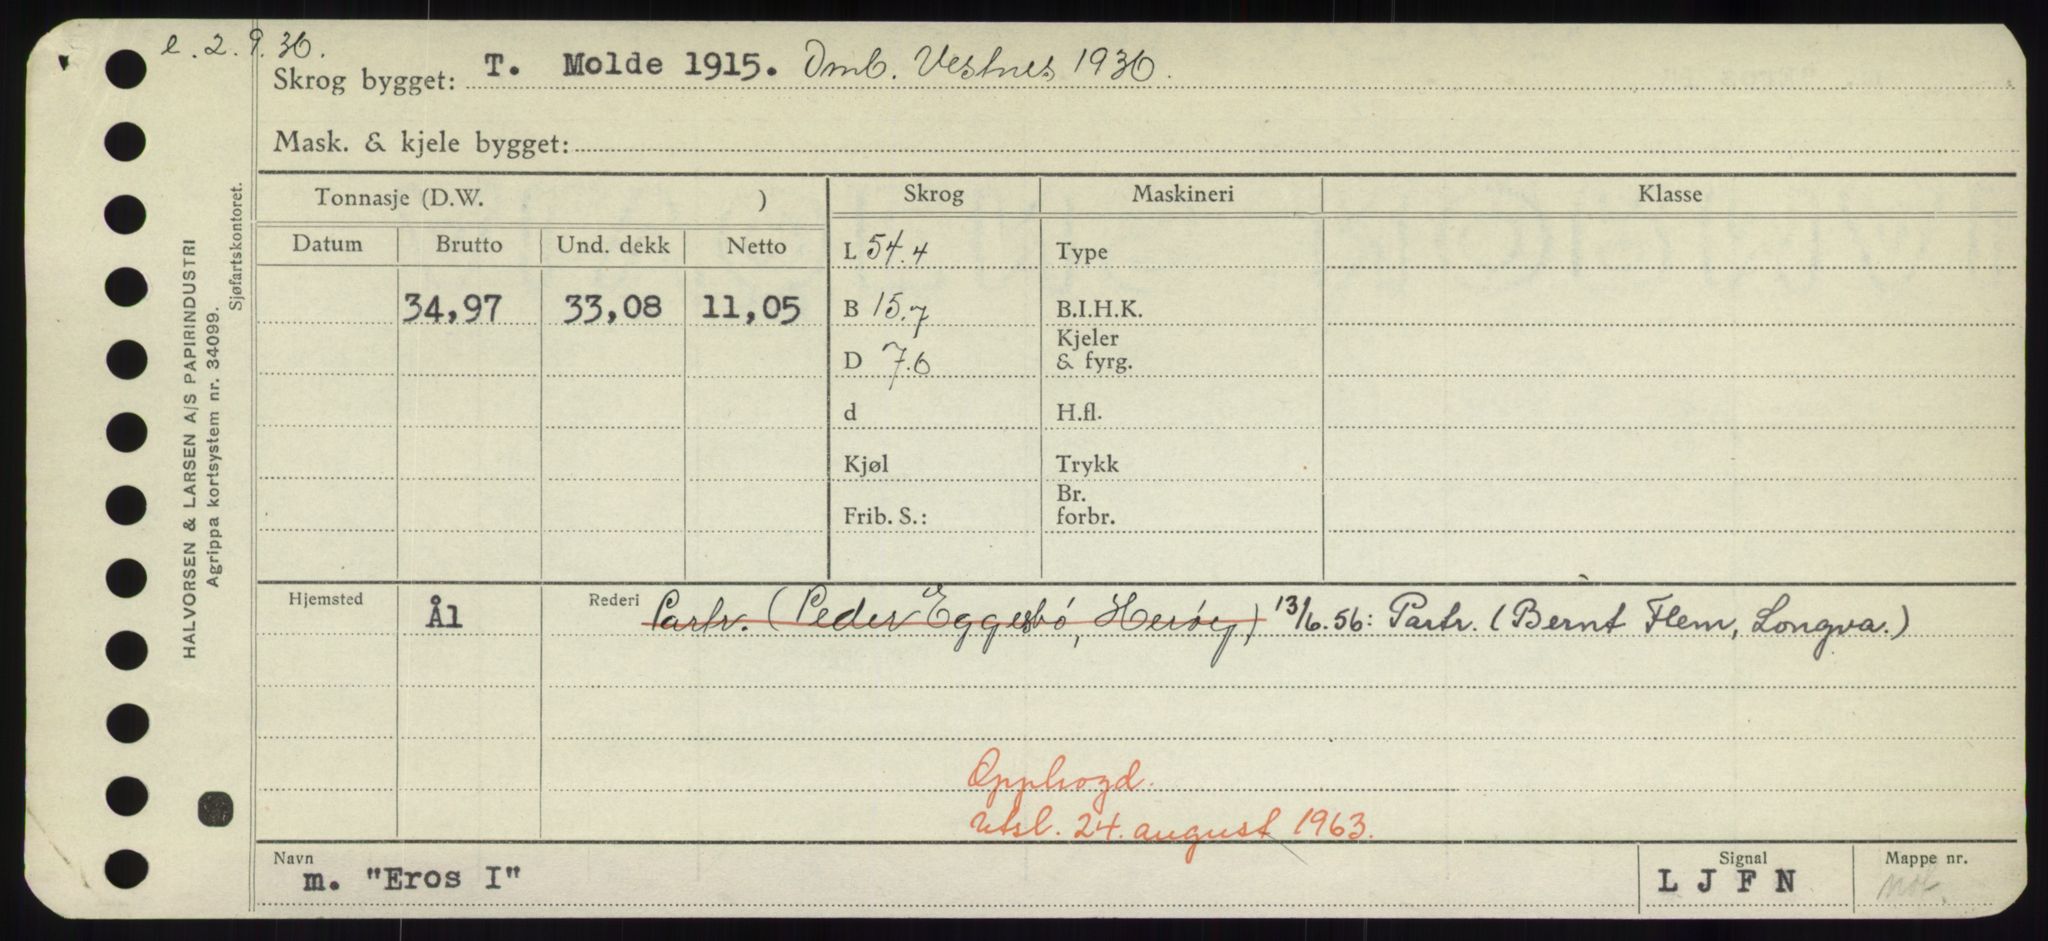 e. 2.9.36.
Skrog bygget: T. Molde 1915. Omb. Vestnes 1936.
Mask. & kjele bygget:
Tonnasje (D.W. )
Skrog Maskineri Klasse
Datum Brutto Und. dekk Netto
L 54.4 Type
34,97 33,08 11,05 B 15.7 B.I.H.K.
D 7.6 Kjeler & fyrg.
d H.fl.
Kjøl Trykk
Frib. S.: Br. forbr.
Hjemsted Ål Rederi Partr. (Peder Eggesbó, Herøy) 13/6.56: Partr. (Bernt Flem, Longva.)
Opphogd.
Utsl. 24. august 1963.
Navn m. "Eros I" Signal L J F N Mappe nr.
HALVORSEN & LARSEN A/S PAPIRINDUSTRI
Agrippa kortsystem nr. 34099.
Sjøfartskontoret.